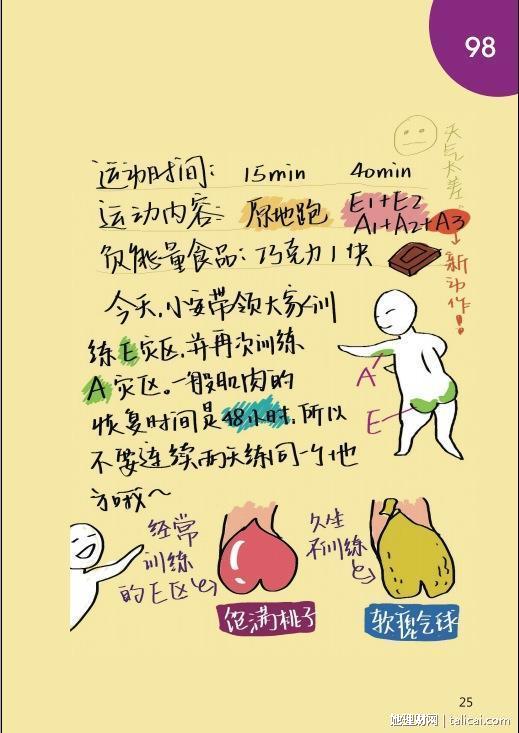 98
天气太差
运动时间： 15min 40min
运动内容： 原地跑 E1+E2
A1+A2+A3
负能量食品：巧克力1块
新动作！
今天，小安带领大家训
练E灾区，并再次训练
A灾区。一般肌肉的
恢复时间是48小时，所以
不要连续两天练同一个地
方哦～
A
E
经常
训练
的E区
久坐
不训练
饱满桃子
软瘪气球
25
她理财网 talicai.com